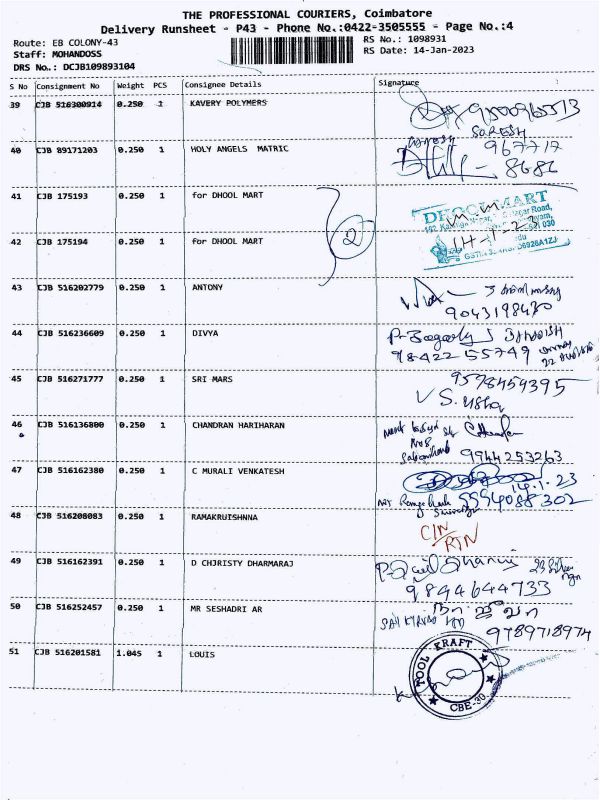 THE PROFESSIONAL COURIERS, Coimbatore
Delivery Runsheet - P43 - Phone No.:0422-3505555 - Page No.:4
Route: EB COLONY-43
RS No.: 1098931
Staff: MOHANDOSS
RS Date: 14-Jan-2023
DRS No.: DCJB109893104
S No Consignment No Weight PCS Consignee Details Signature
39 CJB 516300914 0.250 1 KAVERY POLYMERS
SURESH
40 CJB 89171203 0.250 1 HOLY ANGELS MATRIC
967717
8686
41 CJB 175193 0.250 1 for DHOOL MART
DHOOL MART
2
42 CJB 175194 0.250 1 for DHOOL MART
14-1-23
43 CJB 516202779 0.250 1 ANTONY
9043198430
44 CJB 516236609 0.250 1 DIVYA
98422 55749
45 CJB 516271777 0.250 1 SRI MARS
9578459395
V S. Usha
46 CJB 516136800 0.250 1 CHANDRAN HARIHARAN
9944253263
47 CJB 516162380 0.250 1 C MURALI VENKATESH
14.1.23
9994088302
48 CJB 516208083 0.250 1 RAMAKRUISHNNA
CIN/RTN
49 CJB 516162391 0.250 1 D CHJRISTY DHARMARAJ
9894644733
50 CJB 516252457 0.250 1 MR SESHADRI AR
9789718974
51 CJB 516201581 1.045 1 LOUIS
TOOL KRAFT
CBE-30